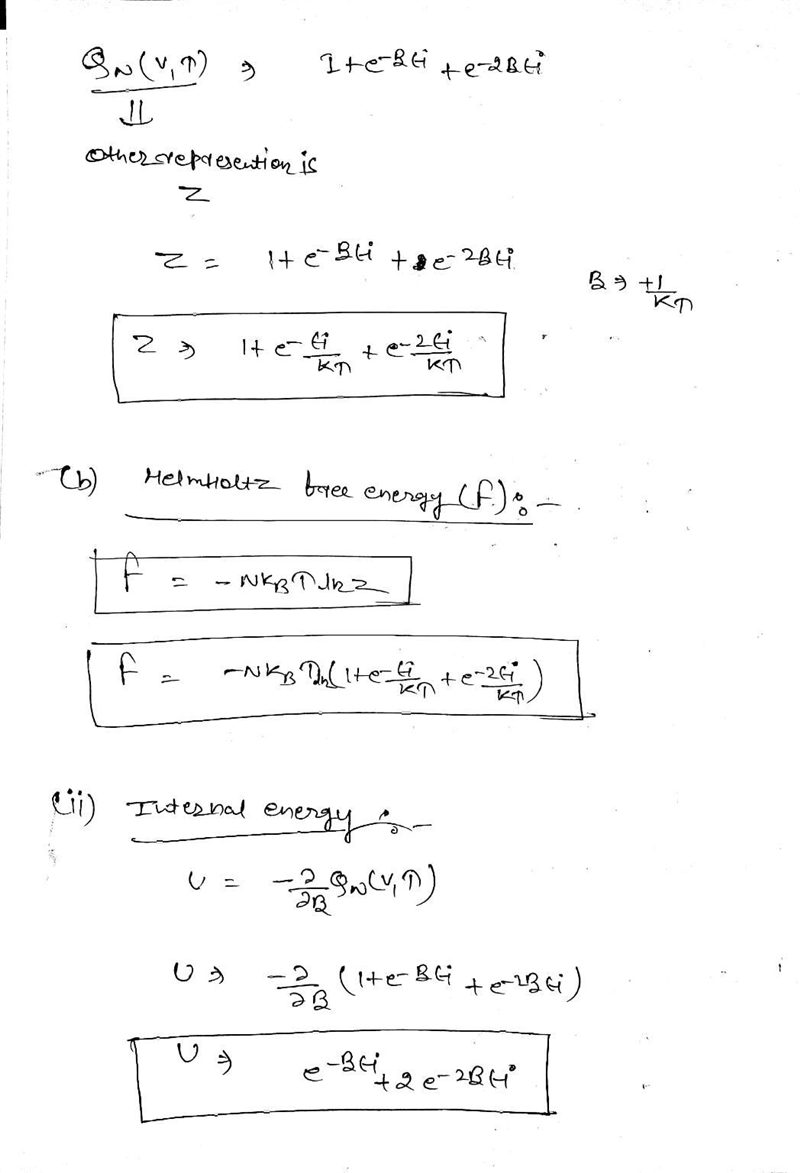 Q_N(V,T) ⇒ 1+e^{-βϵi} + e^{-2βϵi}
⇓
Other represention is
Z
Z = 1+ e^{-βϵi} + e^{-2βϵi}
β ⇒ +1/KT
Z ⇒ 1+ e^{-ϵi/KT} + e^{-2ϵi/KT}
(b) Helmholtz free energy (f) :-
f = -NK_BT ln z
f = -NK_B T ln(1+e^{-ϵi/KT} + e^{-2ϵi/KT})
(ii) Internal energy :-
U = -∂/∂β Q_N(V,T)
U ⇒ -∂/∂β (1+e^{-βϵi} + e^{-2βϵi})
U ⇒ e^{-βϵi} + 2 e^{-2βϵi}